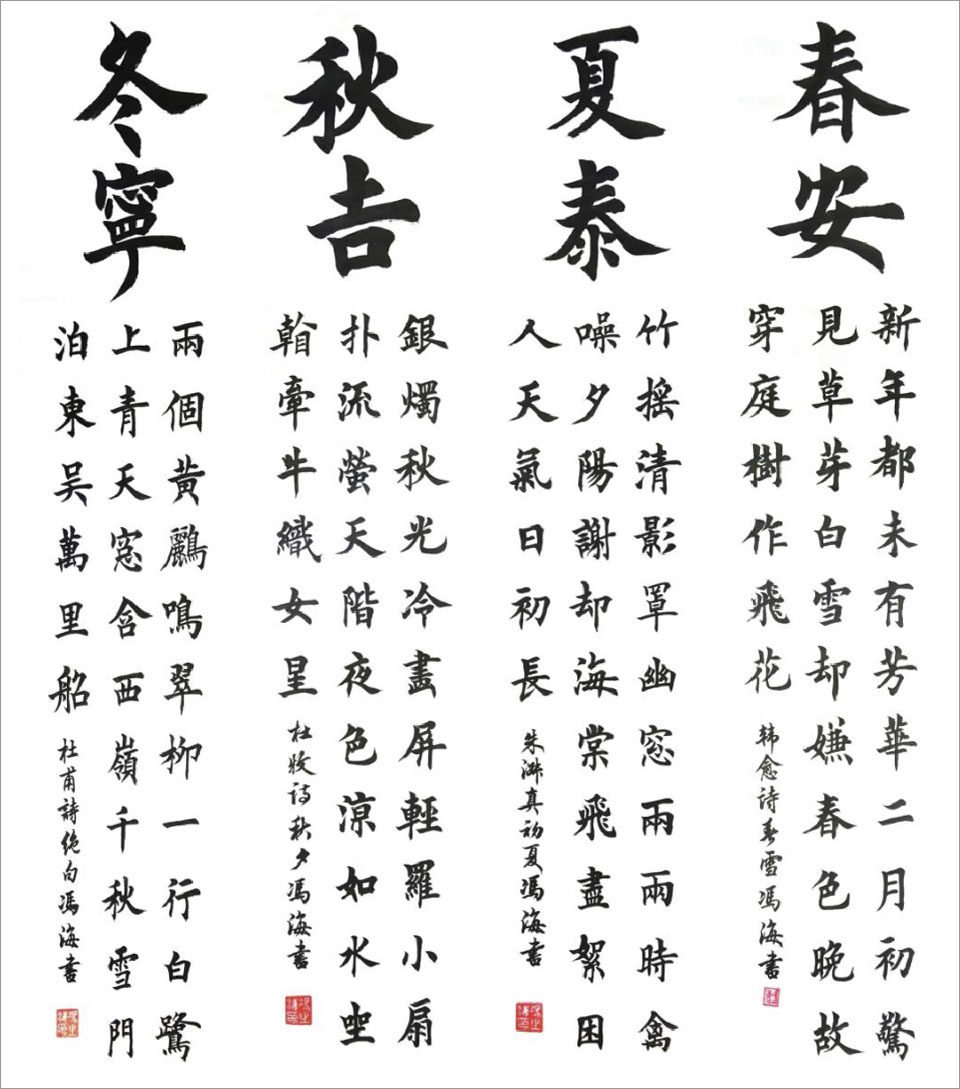 春安
新年都未有芳華二月初驚
見草芽白雪却嫌春色晚故
穿庭樹作飛花
韩愈詩春雪馮海書
夏泰
竹摇清影罩幽窓兩兩時禽
噪夕陽謝却海棠飛盡絮困
人天氣日初長
朱淑真初夏馮海書
秋吉
銀燭秋光冷畫屏輕羅小扇
扑流螢天階夜色涼如水坐
牽牛織女星
杜牧詩秋夕馮海書
冬寧
兩個黃鸝鳴翠柳一行白鷺
上青天窓含西嶺千秋雪門
泊東吴萬里船
杜甫詩绝句馮海書